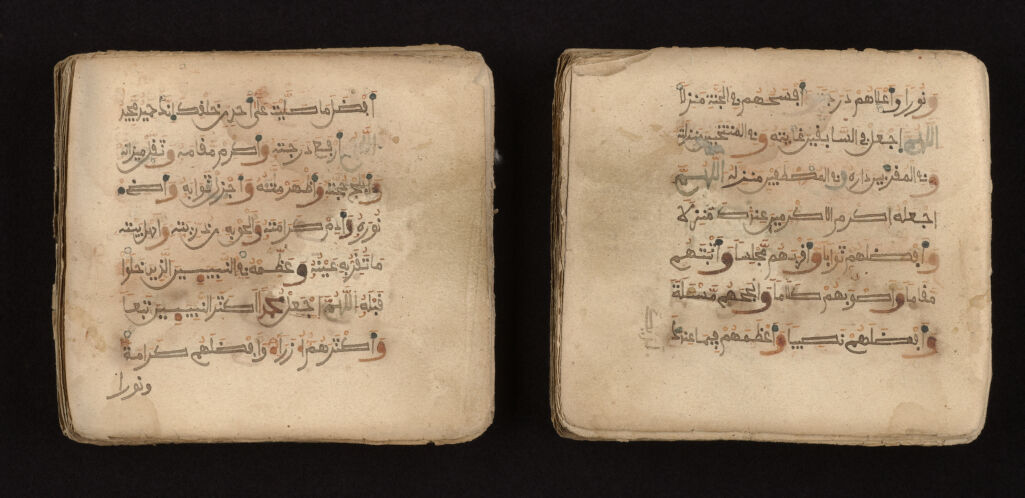 أفضل ما صليت على أحد من خلقك إنك حميد مجيد
اللهم ارفع درجته وأكرم مقامه وثقل ميزانه
وأبلج حجته وأظهر ملته وأجزل ثوابه وأضئ
نوره وأدم كرامته وألحق به من ذريته وأهل بيته
ما تقر به عينه وعظمه في النبيين الذين خلوا
قبله اللهم اجعل محمدا أكثر النبيين تبعا
وأكثرهم أزرا وأفضلهم كرامة
ونورا
ونورا وأعلاهم درجة أفسحهم في الجنة منزلا
اللهم اجعل في السابقين غايته وفي المنتخبين منزله
وفي المقربين داره وفي المصطفين منزله اللهم
اجعله أكرم الأكرمين عندك منزلا
وأفضلهم ثوابا وأقربهم مجلسا وأثبتهم
مقاما وأصوبهم كلاما وأنجحهم مسئلة
وأفضلهم نصيبا وأعظمهم فيما عندك